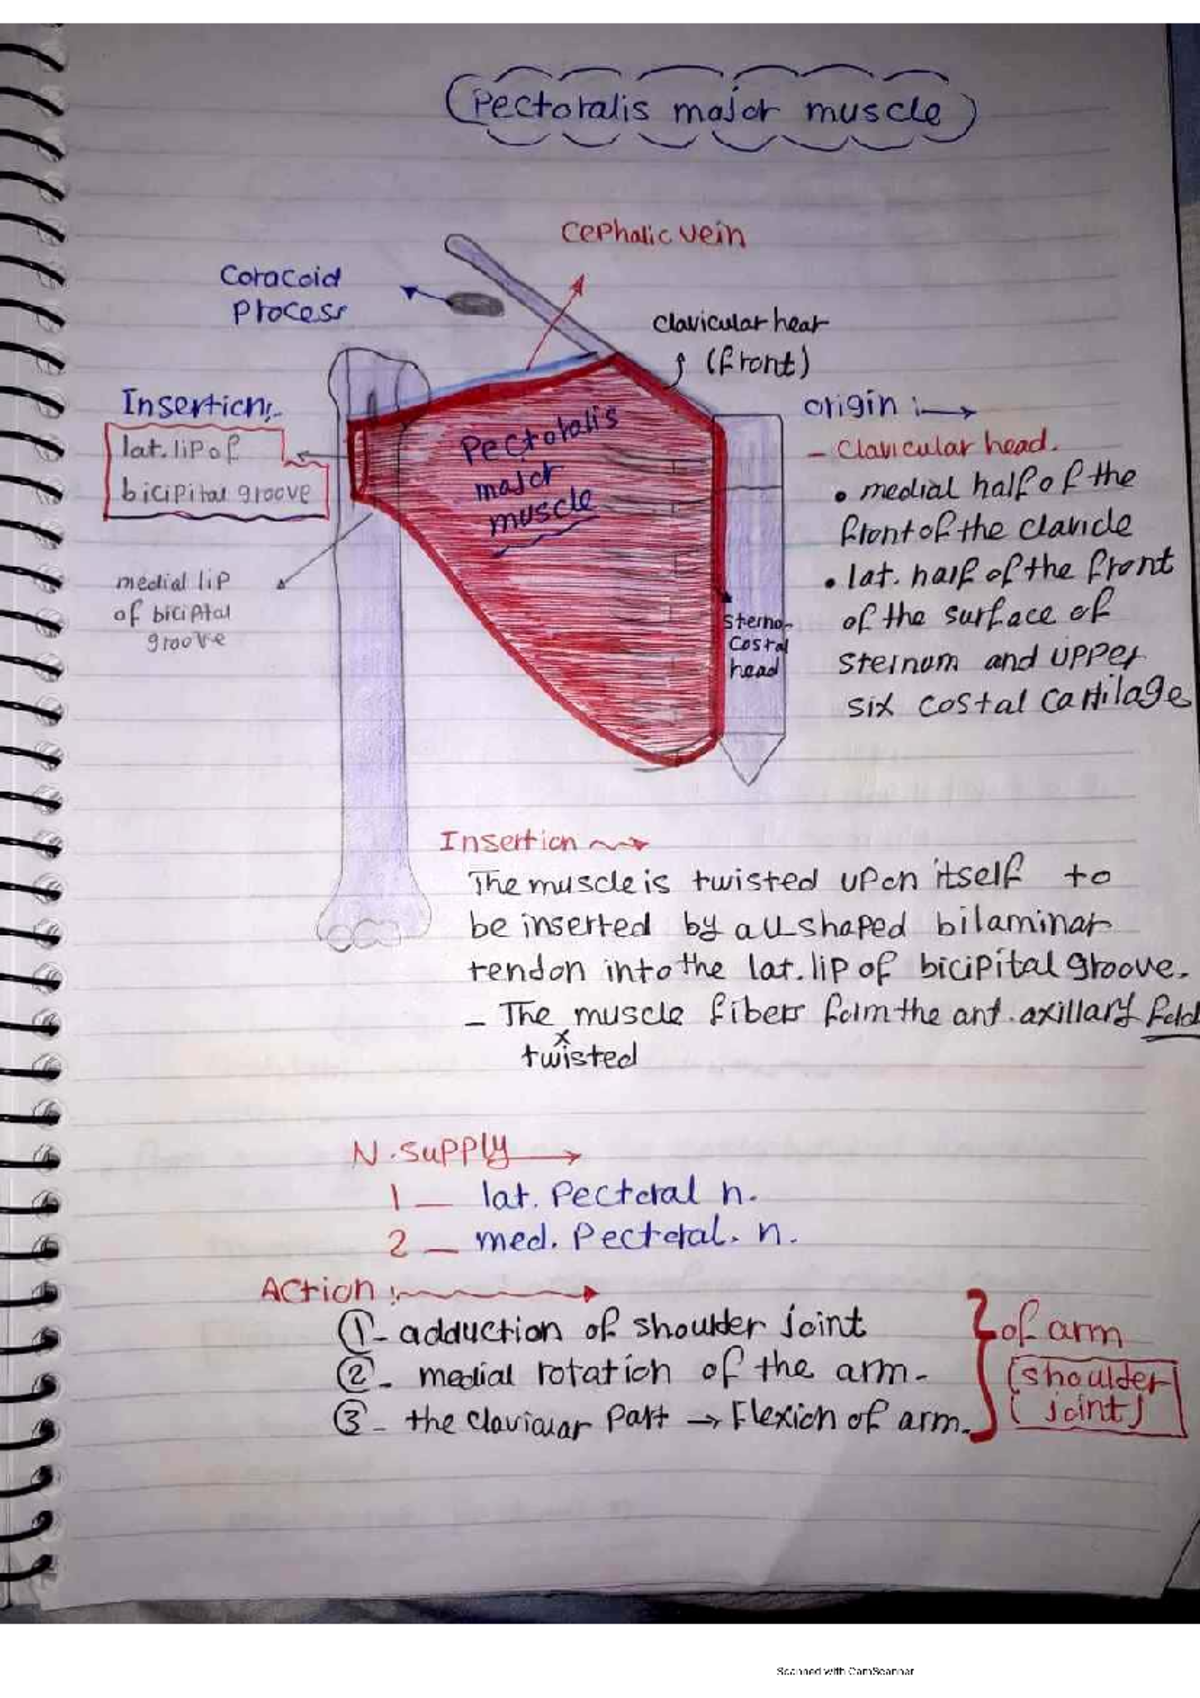 Pectoralis major muscle
Cephalic vein
Coracoid
process
clavicular hear
(front)
Insertion:-
lat. lip of
bicipital groove
medial lip
of biciptal
groove
Pectoralis
major
muscle
sterno-
Costal
head
origin :
- Clavicular head.
• medial half of the
front of the clavicle
• lat. half of the front
of the surface of
sternum and upper
six costal cartilage
Insertion
The muscle is twisted upon itself to
be inserted by a U shaped bilaminar
tendon into the lat. lip of bicipital groove.
- The muscle fibers form the ant. axillary fold
x
twisted
N. supply
1 - lat. Pectoral n.
2 - med. Pectoral. n.
Action :
① - adduction of shoulder joint
② - medial rotation of the arm.
③ - the clavicular part → Flexion of arm.
of arm
(shoulder
joint)
Scanned with CamScanner